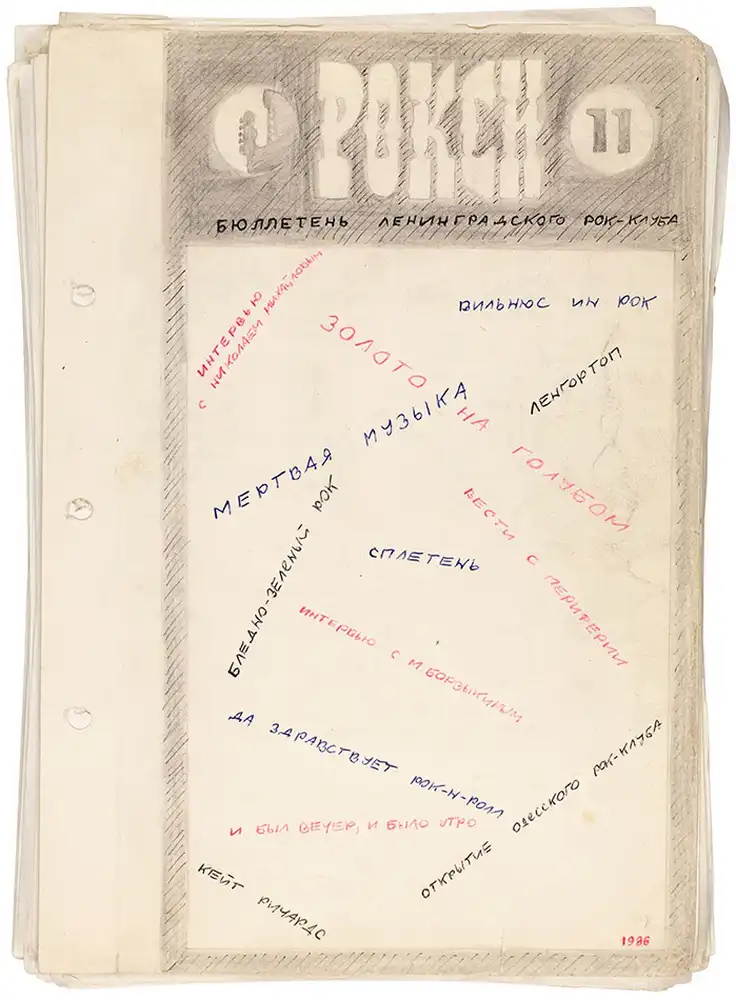 РОКСИ
11
БЮЛЛЕТЕНЬ ЛЕНИНГРАДСКОГО РОК-КЛУБА
ИНТЕРВЬЮ
С НИКОЛАЕМ МИХАЙЛОВЫМ
ВИЛЬНЮС ИН РОК
ЗОЛОТО НА ГОЛУБОМ
ЛЕНГОРТОП
МЕРТВАЯ МУЗЫКА
БЛЕДНО-ЗЕЛЕНЫЙ РОК
ВЕСТИ С ПЕРИФЕРИИ
СПЛЕТЕНЬ
ИНТЕРВЬЮ С М. БОРЗЫКИНЫМ
ДА ЗДРАВСТВУЕТ РОК-Н-РОЛЛ
ОТКРЫТИЕ ОДЕССКОГО РОК-КЛУБА
И БЫЛ ВЕЧЕР, И БЫЛО УТРО
КЕЙТ РИЧАРДС
1986